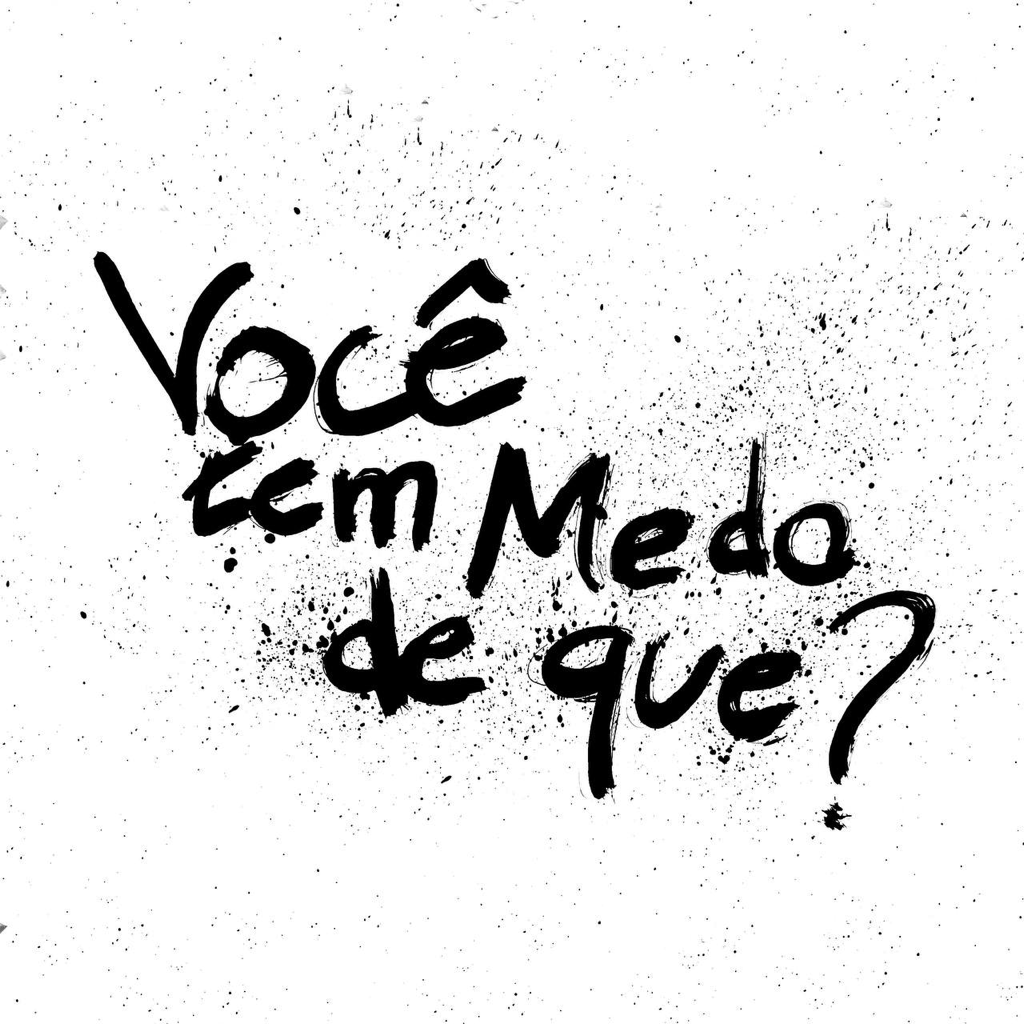 Você
tem Medo
de que?